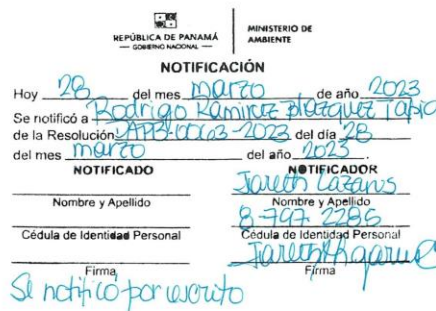 REPÚBLICA DE PANAMÁ
— GOBIERNO NACIONAL —
MINISTERIO DE
AMBIENTE
NOTIFICACIÓN
Hoy 28 del mes marzo de año 2023
Se notificó a Rodrigo Ramirez Blazquez Tapia
de la Resolución DAPB-0063-2023 del día 28
del mes marzo del año 2023.
NOTIFICADO
Nombre y Apellido
Cédula de Identidad Personal
Firma
NOTIFICADOR
Jareth Lazarus
Nombre y Apellido
8-797-2286
Cédula de Identidad Personal
Firma
Se notificó por escrito